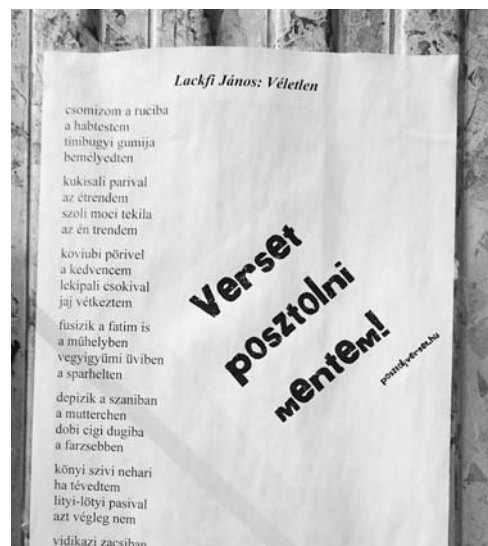 Lackfi János: Véletlen
csomizom a ruciba
a habtestem
tinibugyi gumija
bemélyedten
kukisali parival
az étrendem
szoli moci tekila
az én trendem
koviubi pörivel
a kedvencem
lekipali csokival
jaj vétkeztem
fusizik a fatim is
a műhelyben
vegyigyümi üviben
a sparhelten
depizik a szaniban
a mutterchen
dobi cigi dugiba
a farzsebben
könyi szivi nehari
ha tévedtem
lityi-lötyi pasival
azt végleg nem
vidikazi zacsiban
Verset
posztolni
mentem!
posztolj-verset.hu